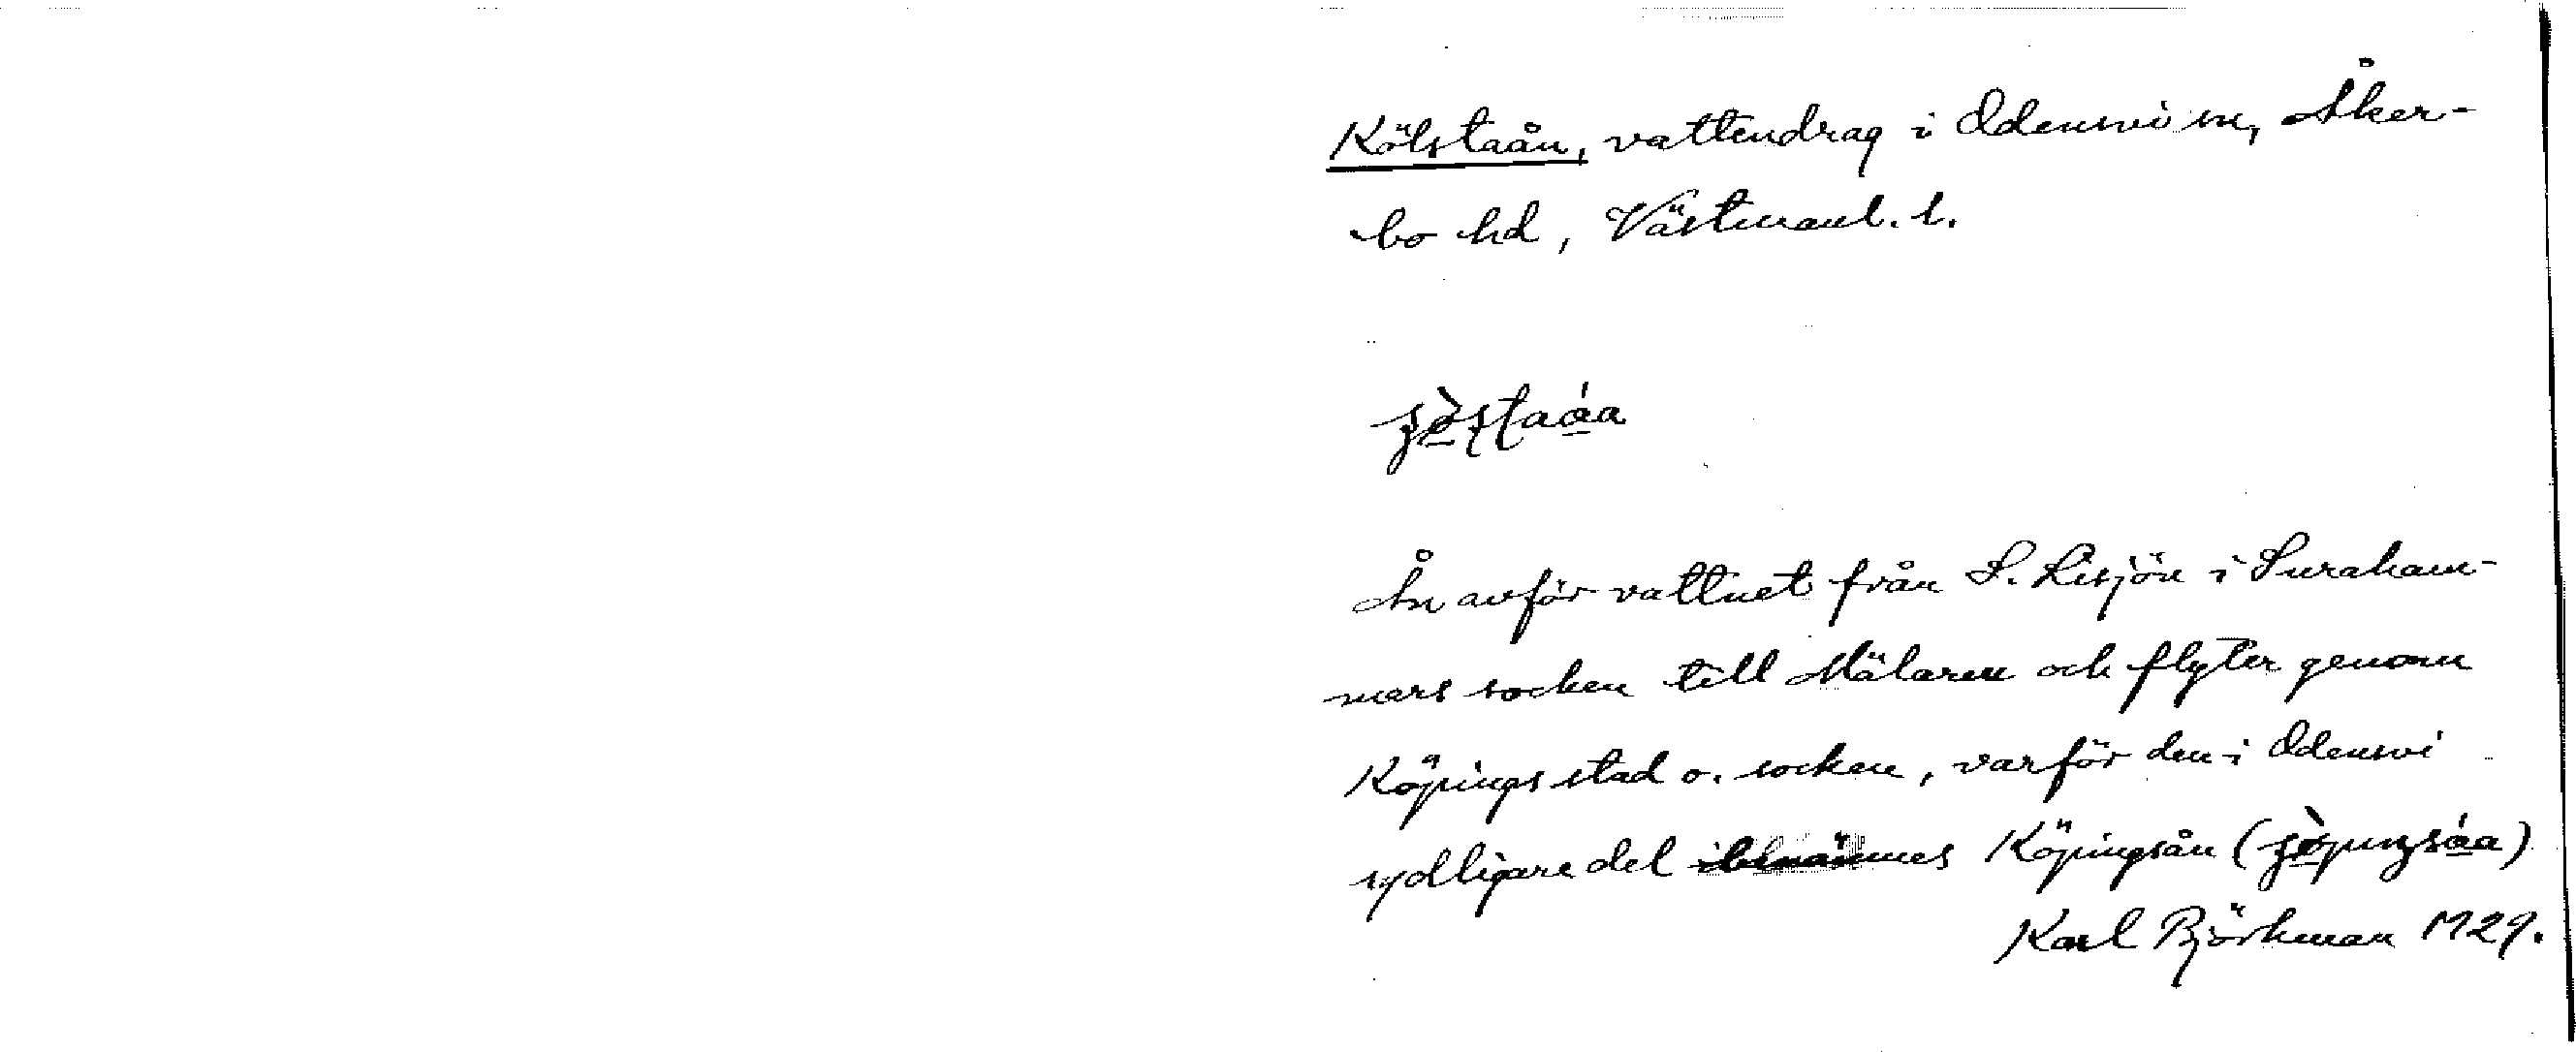 Kölstaån, vattendrag i Odensvi sn, Åker-
bo hd, Västmanl. l.
Ån avför vattnet från S. Lisjön i Suraham-
mars socken till Mälaren och flyter genom
Köpings stad o. socken, varför den i Odensvi
sydligare del benämnes Köpingsån
Karl Björkman 1929.